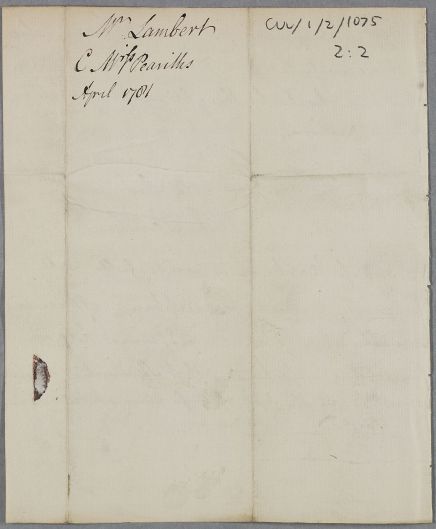 Mr. Lambert
C Mrs Pearills
April 1781
CUL/1/2/1075
2:2